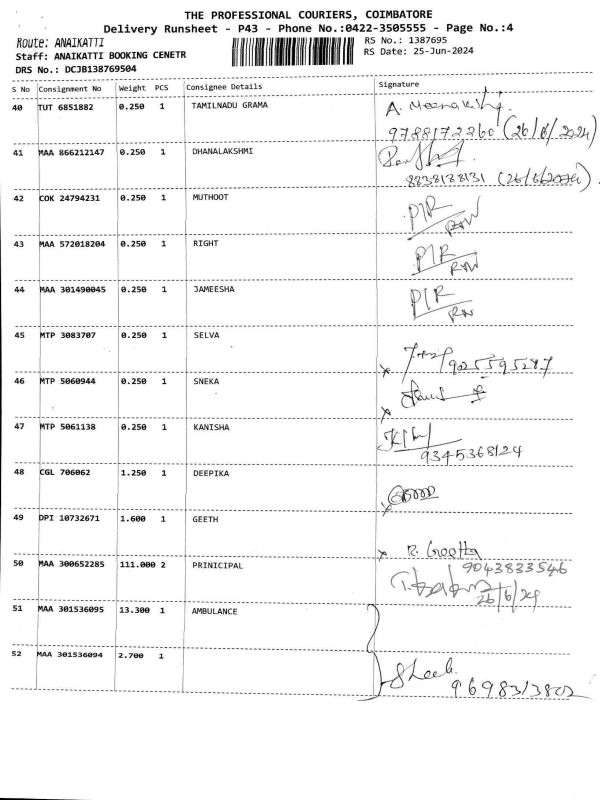 THE PROFESSIONAL COURIERS, COIMBATORE
Delivery Runsheet - P43 - Phone No.:0422-3505555 - Page No.:4
Route: ANAIKATTI
RS No.: 1387695
Staff: ANAIKATTI BOOKING CENETR
RS Date: 25-Jun-2024
DRS No.: DCJB138769504
S No Consignment No Weight PCS Consignee Details Signature
40 TUT 6851882 0.250 1 TAMILNADU GRAMA
(26/6/2024)
41 MAA 866212147 0.250 1 DHANALAKSHMI
8838188131 (26/6/2024)
42 COK 24794231 0.250 1 MUTHOOT P/R
43 MAA 572018204 0.250 1 RIGHT P/R
44 MAA 301490045 0.250 1 JAMEESHA P/R
45 MTP 3083707 0.250 1 SELVA
9025595287
46 MTP 5060944 0.250 1 SNEKA
47 MTP 5061138 0.250 1 KANISHA
9345368124
48 CGL 706062 1.250 1 DEEPIKA
49 DPI 10732671 1.600 1 GEETH
R. Geetha
50 MAA 300652285 111.000 2 PRINICIPAL 9043833546
26/6/24
51 MAA 301536095 13.300 1 AMBULANCE
52 MAA 301536094 2.700 1